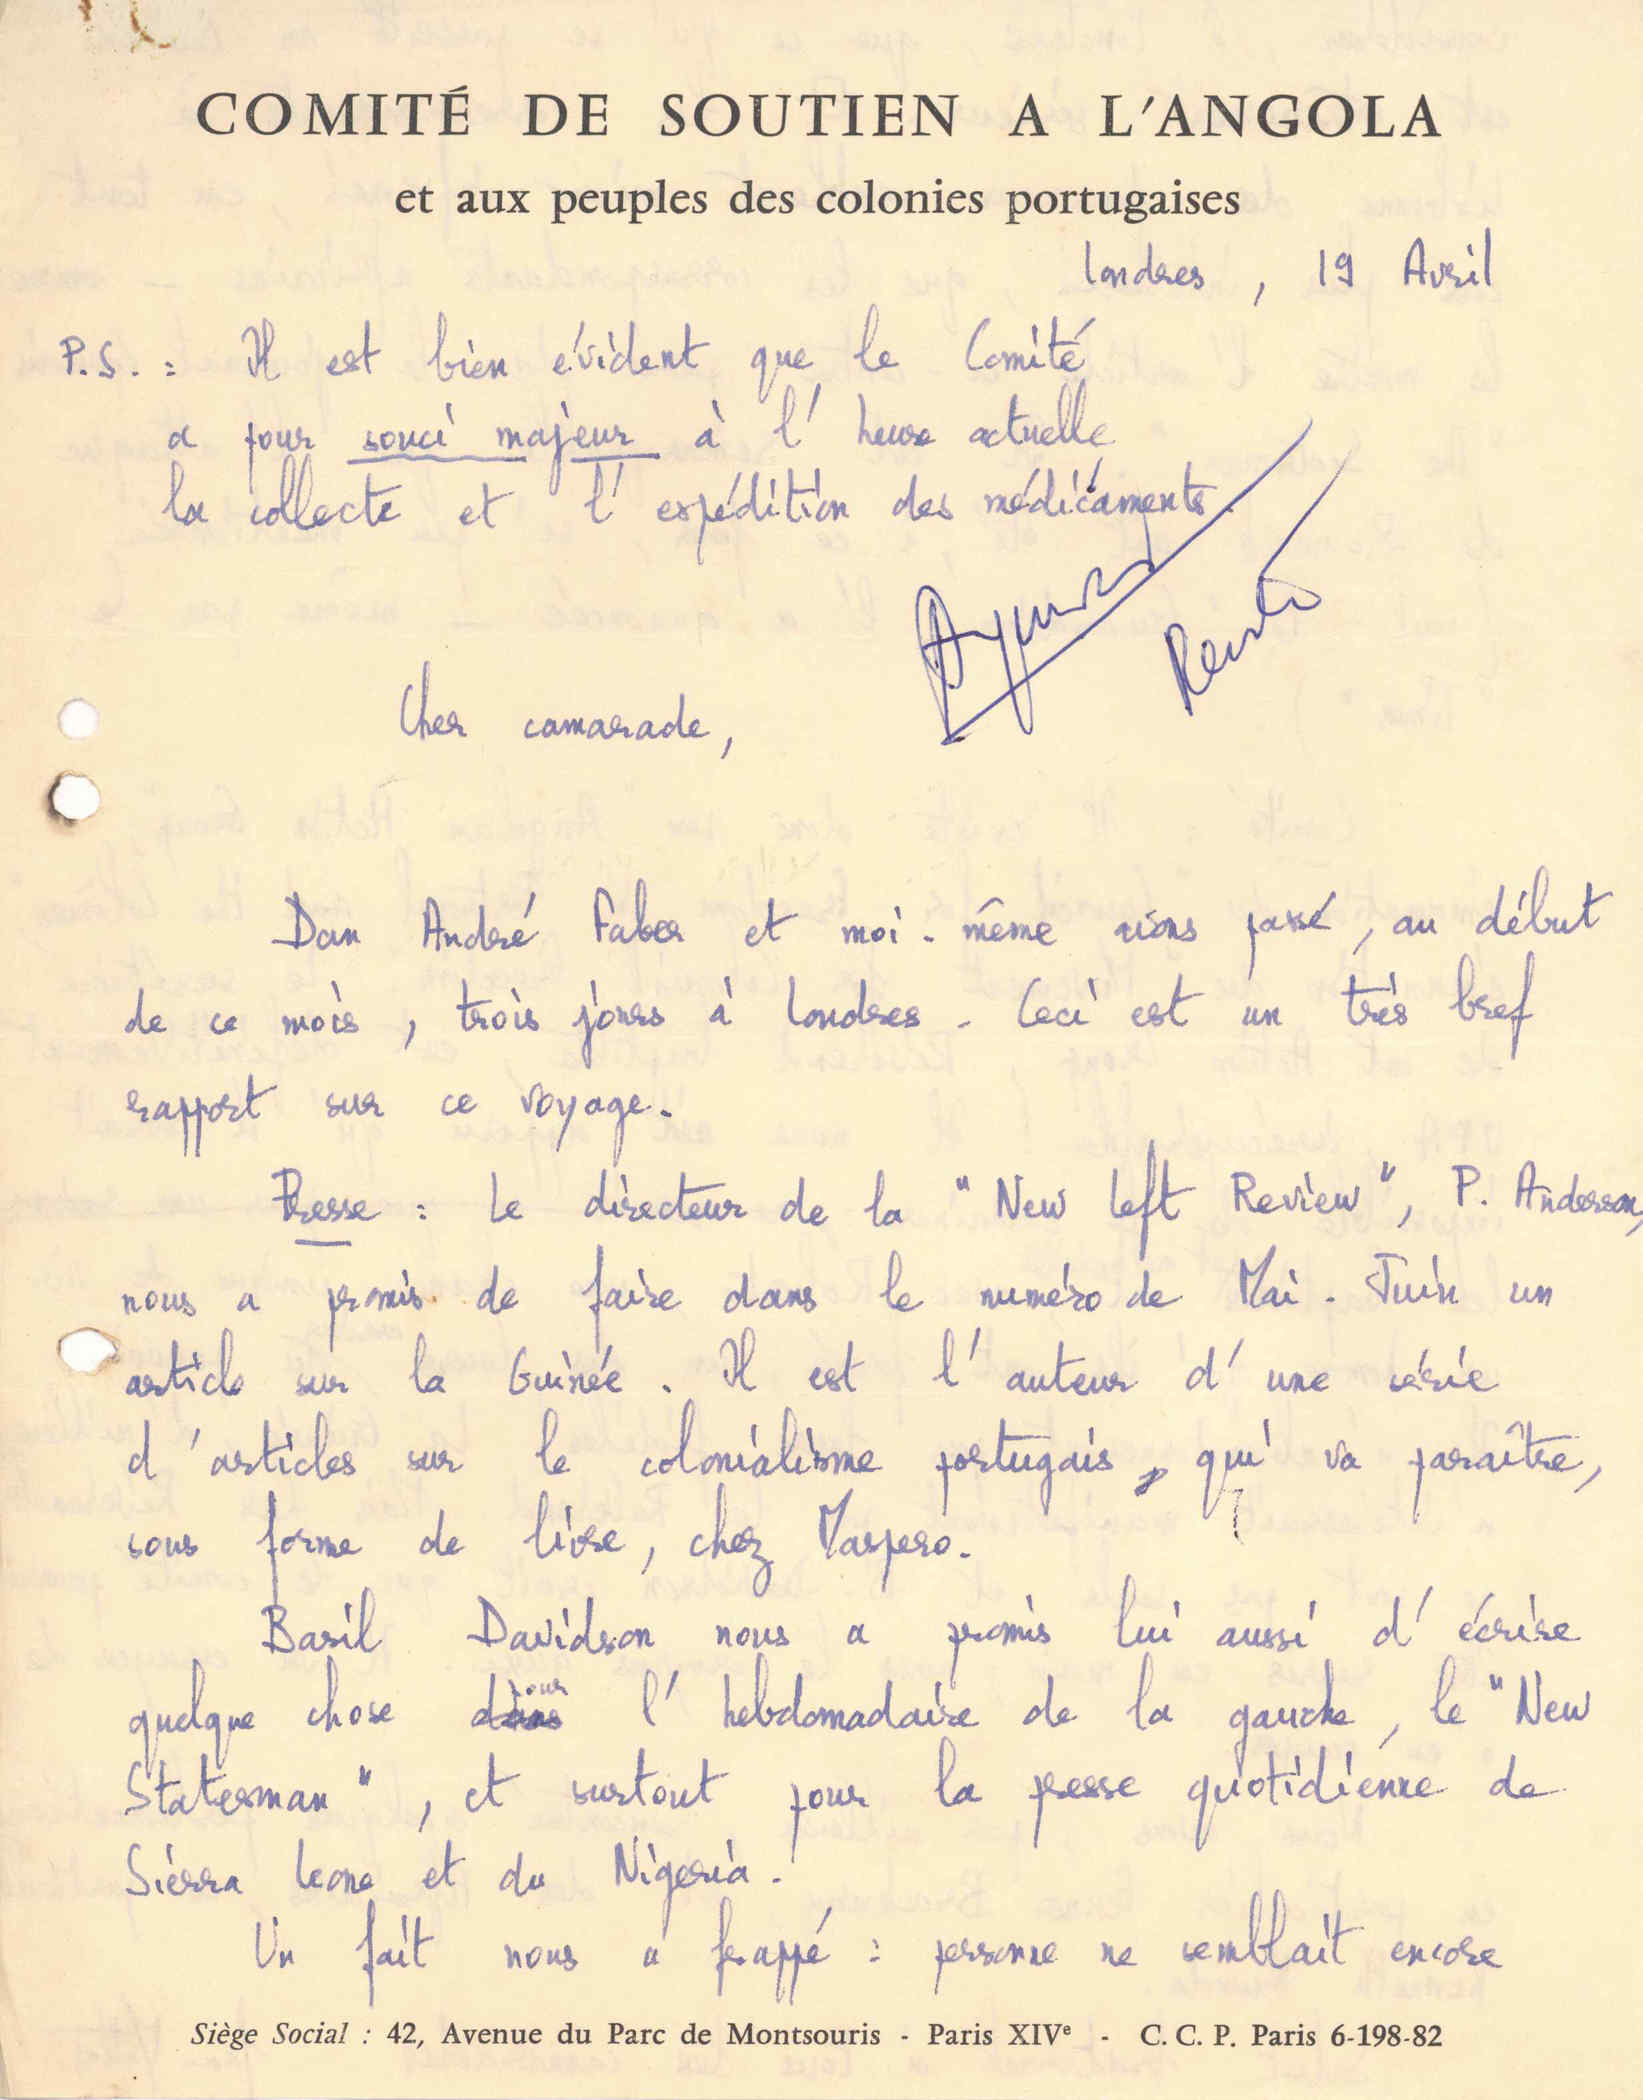 COMITÉ DE SOUTIEN A L'ANGOLA
et aux peuples des colonies portugaises
Londres, 19 Avril
P.S. : Il est bien évident que le Comité
a pour souci majeur à l'heure actuelle
la collecte et l'expédition des médicaments.
Cher camarade,
Dan André Faber et moi-même avons passé, au début
de ce mois, trois jours à Londres. Ceci est un très bref
rapport sur ce voyage.
Presse : Le directeur de la "New Left Review", P. Anderson,
nous a promis de faire dans le numéro de Mai-Juin un
article sur la Guinée. Il est l'auteur d'une série
d'articles sur le colonialisme portugais, qui va paraître,
sous forme de livre, chez Maspero.
Basil Davidson nous a promis lui aussi d'écrire
quelque chose pour l'hebdomadaire de la gauche, le "New
Statesman", et surtout pour la presse quotidienne de
Sierra Leone et du Nigeria.
Un fait nous a frappé : personne ne semblait encore
Siège Social : 42, Avenue du Parc de Montsouris - Paris XIVe - C. C. P. Paris 6-198-82